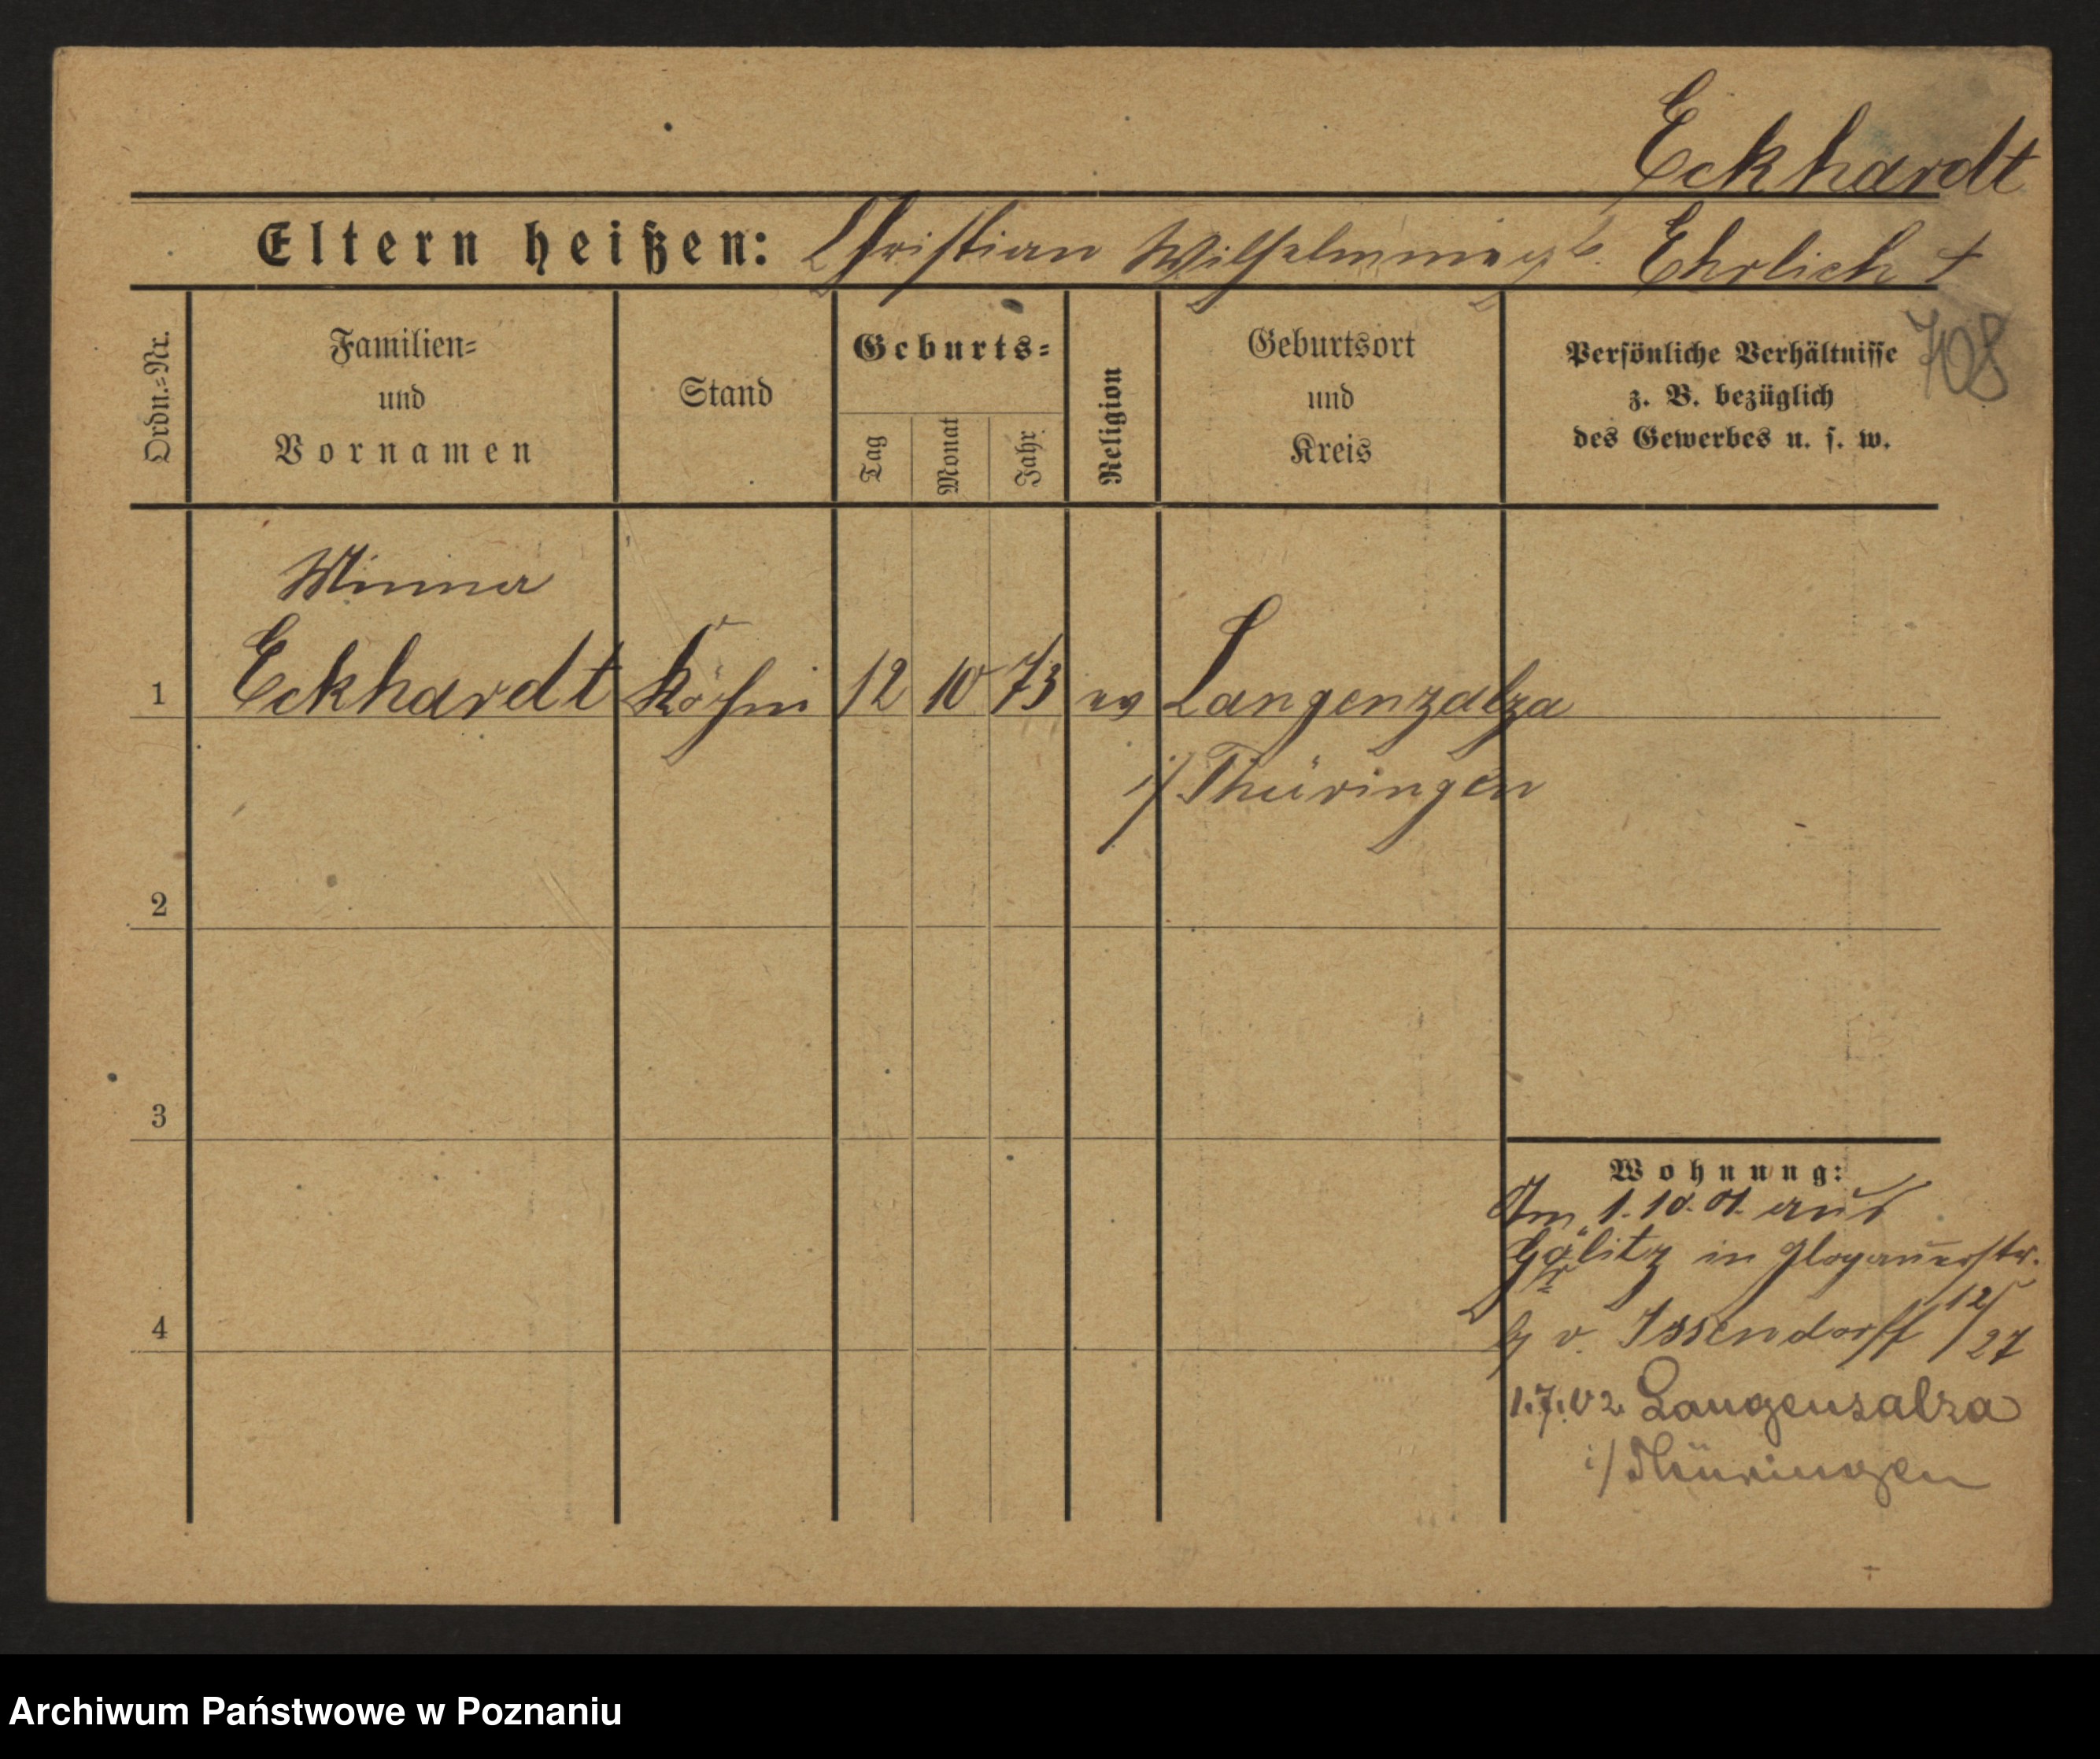 Eckhardt
Eltern heißen: Christian Wilhelmine geb. Ehrlich †
708
Ordn.=Nr.
Familien=
und
Vornamen
Stand
Geburts=
Tag
Monat
Jahr
Religion
Geburtsort
und
Kreis
Persönliche Verhältnisse
z. B. bezüglich
des Gewerbes u. s. w.
Minna
1 Eckhardt Köchin 12 10 73 ev Langenzalza
i/ Thüringen
2
3
4
Wohnung:
Am 1.10.01. aus
Görlitz in Glogauerstr.
b v. Issendorff 12/27
1.7.02. Langensalza
i/ Thüringen
Archiwum Państwowe w Poznaniu